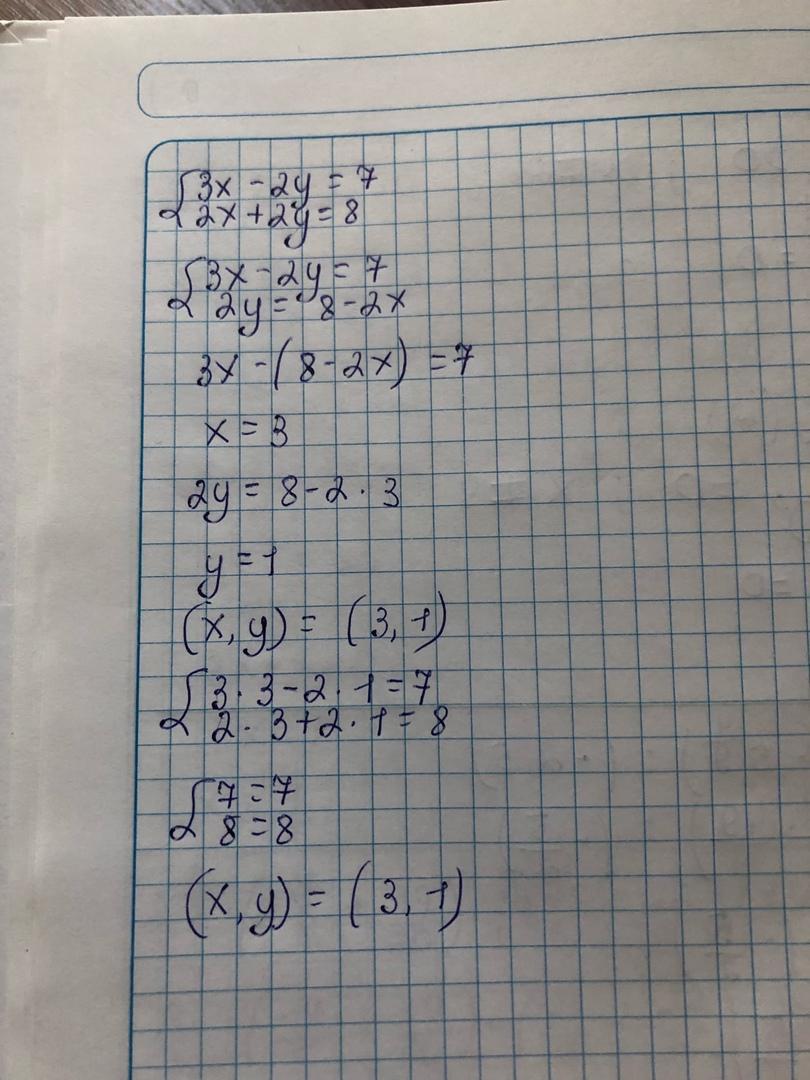 {3x - 2y = 7
2x + 2y = 8
{3x - 2y = 7
2y = 8 - 2x
3x - (8 - 2x) = 7
x = 3
2y = 8 - 2 · 3
y = 1
(x, y) = (3, 1)
{3 · 3 - 2 · 1 = 7
2 · 3 + 2 · 1 = 8
{7 = 7
8 = 8
(x, y) = (3, 1)